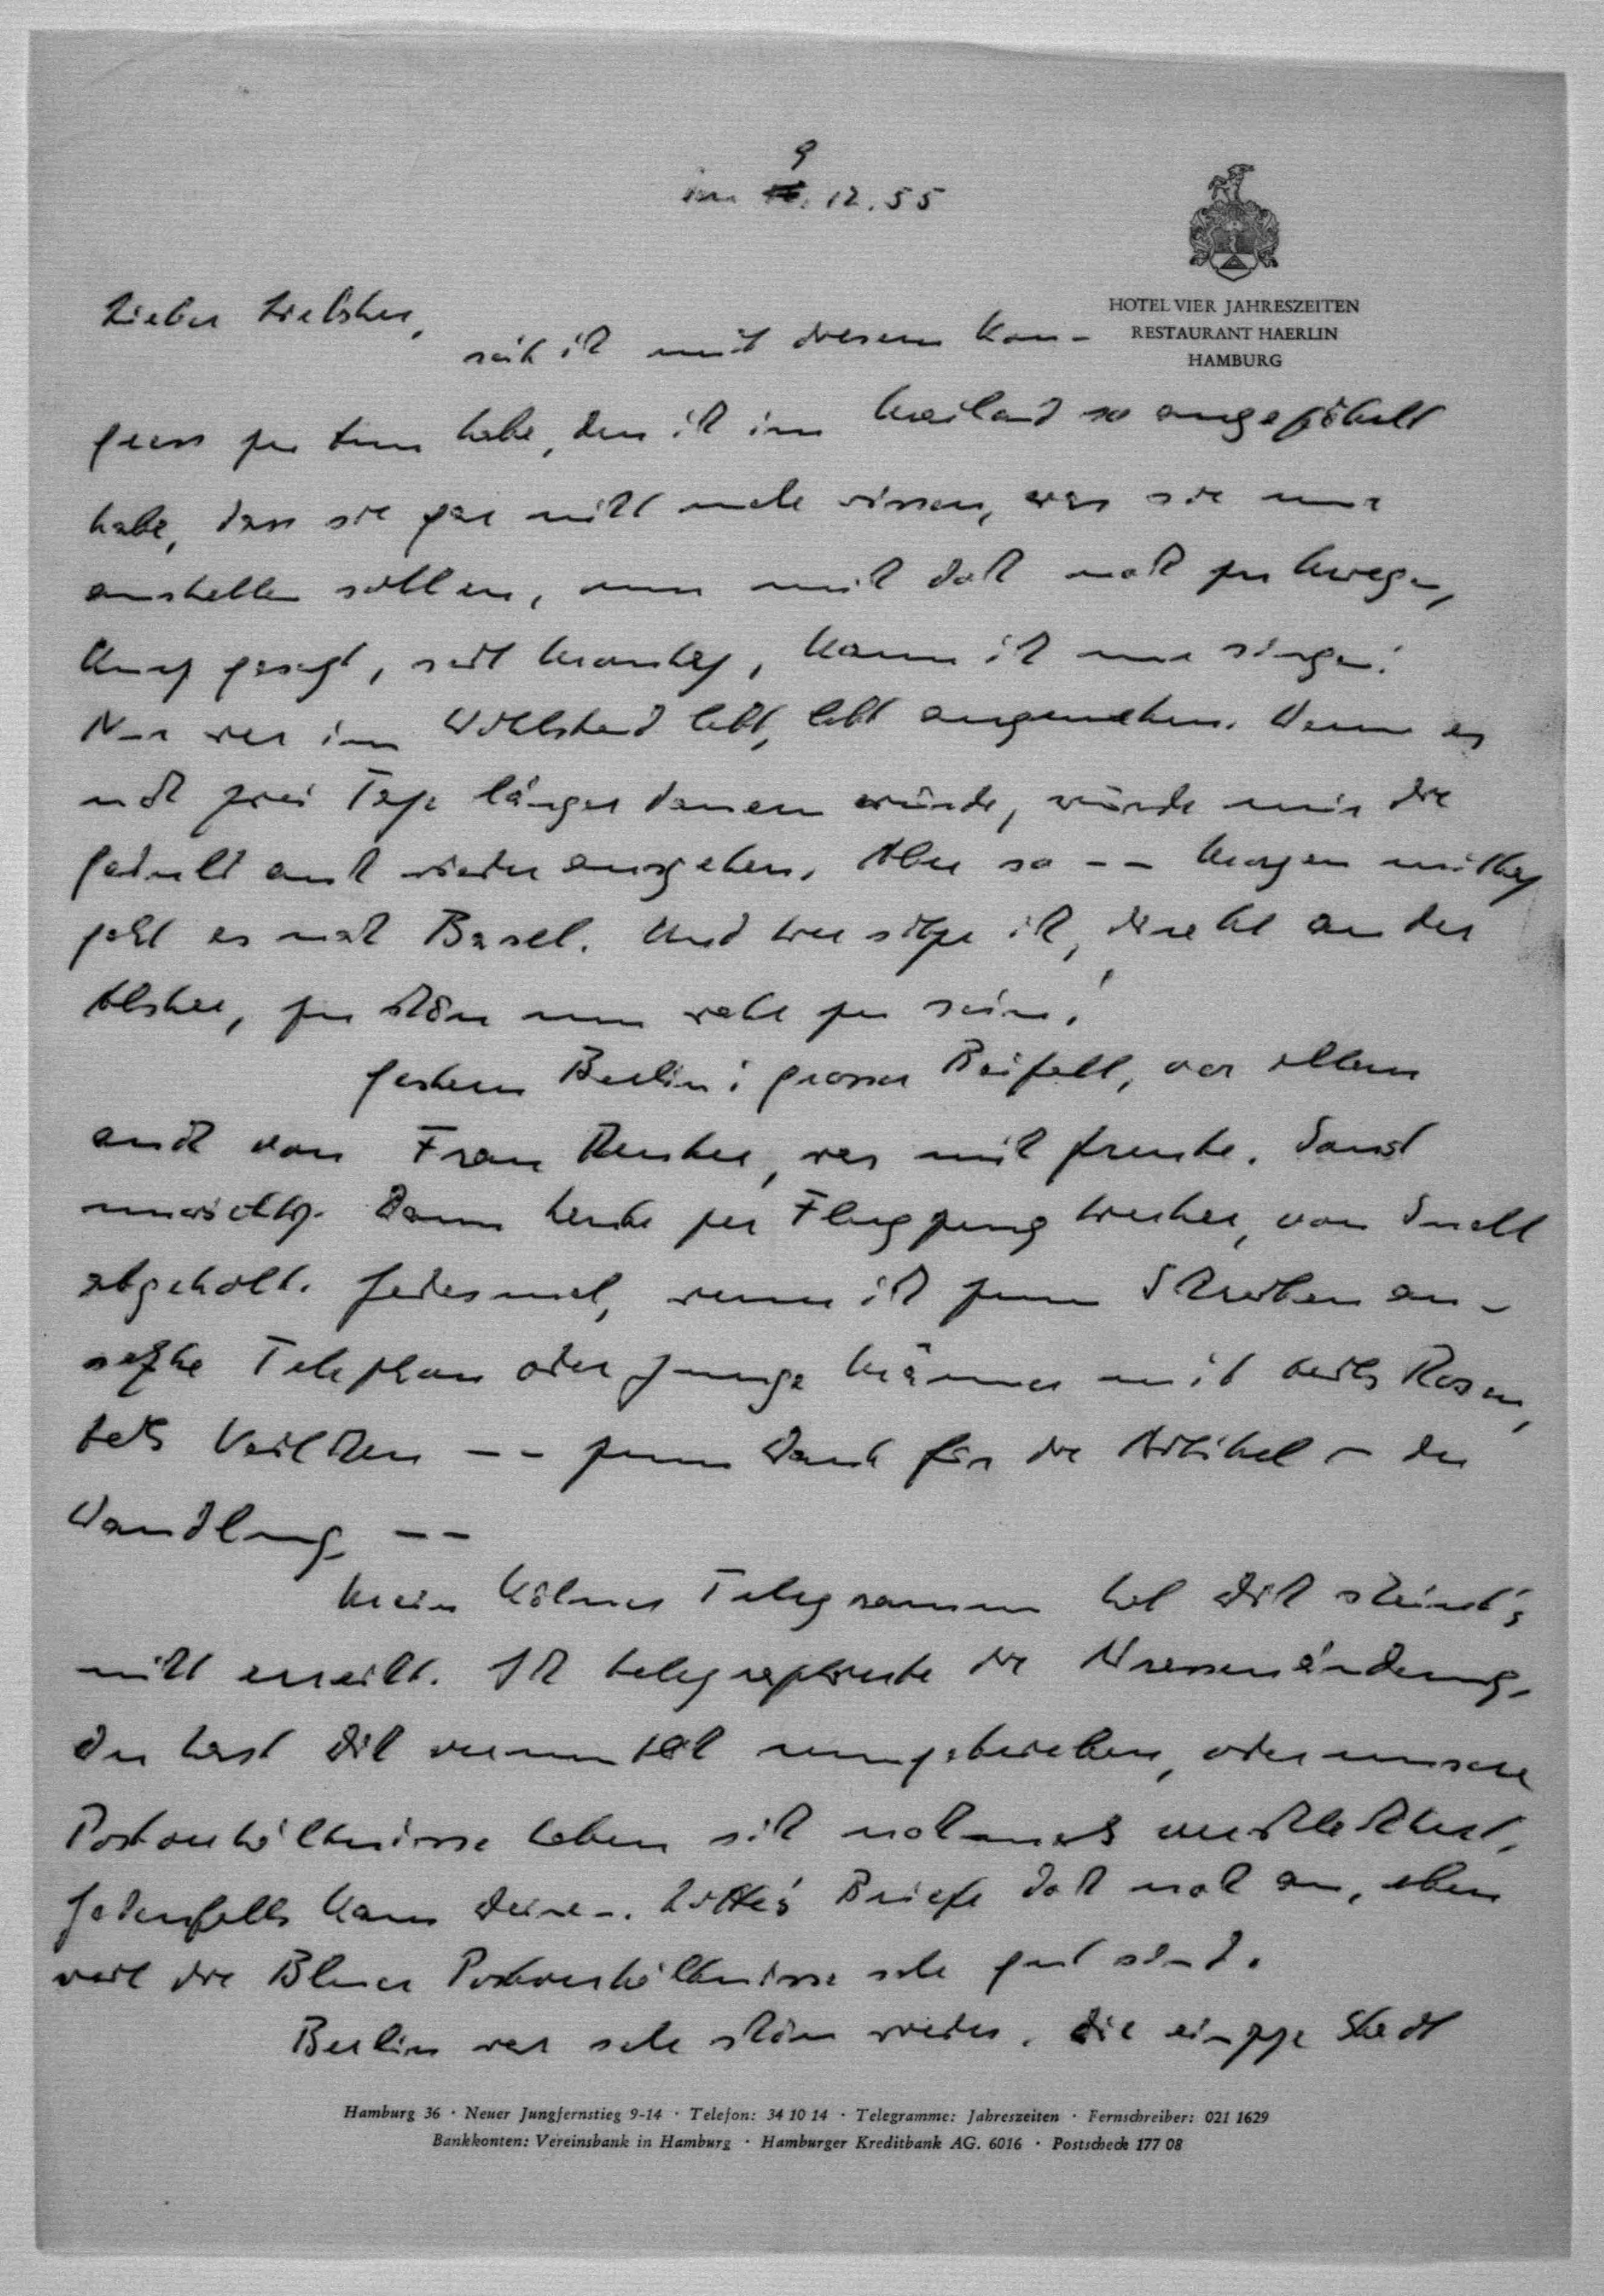 den 9. 12. 55
HOTEL VIER JAHRESZEITEN
RESTAURANT HAERLIN
HAMBURG
Liebster Liebster,
seit ich mit diesem Kon-
gress zu tun habe, den ich in Mailand so angepöbelt
habe, dass sie gar nicht mehr wissen, was sie nur
anstellen sollen, um mich doch noch zu kriegen,
kurz gesagt, seit Montag, kann ich nur singen:
Nur wer im Wohlstand lebt, lebt angenehm. Wenn es
noch zwei Tage länger dauern würde, würde mir die
Geduld auch wieder ausgehen. Aber so -- Morgen mittag
geht es nach Basel. Und hier sitze ich, direkt an der
Alster, zu schön um wahr zu sein!
Gestern Berlin: grosser Beifall, vor allem
auch von Frau Reuter, was mich freute. Sonst
unwichtig. Dann heute per Flugzeug hierher, von Snell
abgeholt. Jedesmal, wenn ich zum Schreiben an-
setzte Telephon oder junge Männer mit teils Rosen,
teils Veilchen -- zum Dank für die Artikel in der
Wandlung --
Mein Kölner Telegramm hat Dich scheint's
nicht erreicht. Ich telegraphierte die Adressenänderung.
Du hast Dich vermutlich rumgetrieben, oder unsere
Postverhältnisse haben sich nochmals verschlechtert.
Jedenfalls kam Deine u. Lotte's Briefe doch noch an, eben
weil die Blner Postverhältnisse sehr gut sind.
Berlin war sehr schön wieder. Die einzige Stadt
Hamburg 36 · Neuer Jungfernstieg 9-14 · Telefon: 34 10 14 · Telegramme: Jahreszeiten · Fernschreiber: 021 1629
Bankkonten: Vereinsbank in Hamburg · Hamburger Kreditbank AG. 6016 · Postscheck 177 08